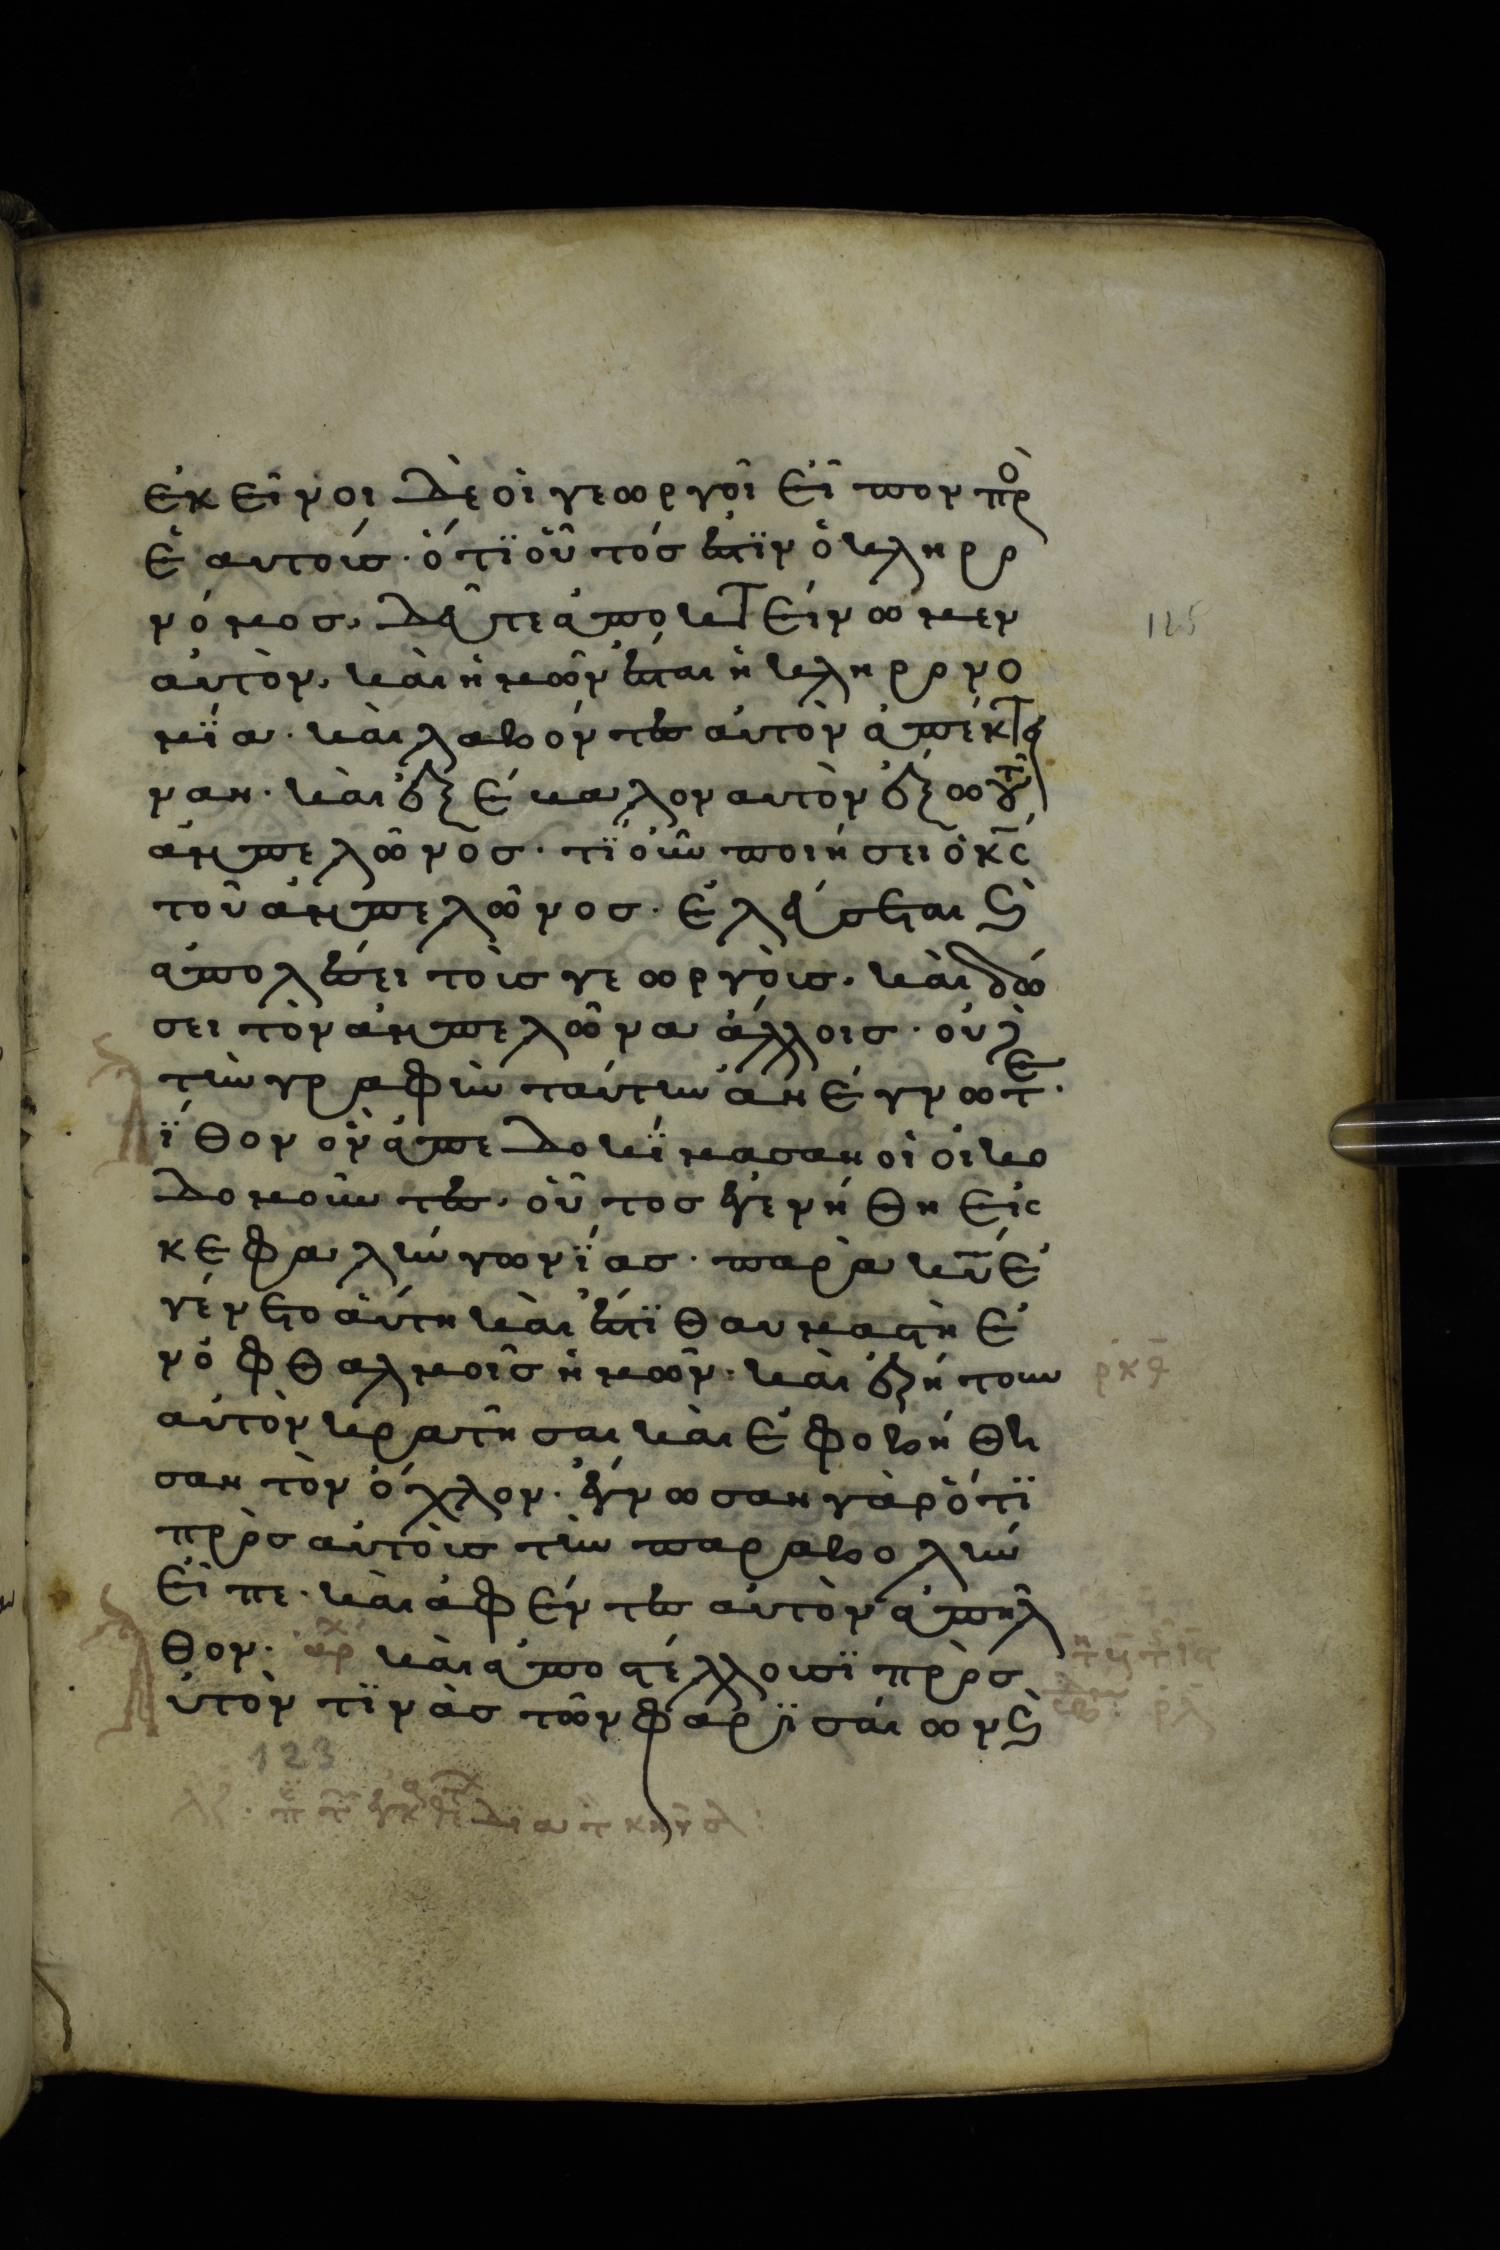 ἐκεῖνοι δὲ οἱ γεωργοῖ εἶπον πρὸ
ἑαυτοίς· ὅτϊ οὗτός ἐστϊν ὁ κληρο
νόμος, δεῦτε ἀποκτείνωμεν
αὐτὸν, καὶ ἡμῶν ἔσται ἡ κληρονο
μΐα· καὶ λαβόντες αὐτὸν ἀπέκτει
ναν· καὶ ἐξέβαλον αὐτὸν ἔξω τοῦ
ἀμπελῶνος· τΐ οὖν ποιήσει ὁ κς
τοῦ ἀμπελῶνος· ἐλεύσεται καὶ
ἀπολέσει τοὺς γεωργοὺς, καὶ δώ
σει τὸν ἀμπελῶνα ἄλλοις· οὐδὲ
τὴν γραφὴν ταύτην ἀνέγνωτε·
λΐθον ὃν ἀπεδοκΐμασαν οἱ οἰκο
δομοῦντες, οὗτος ἐγενήθη εἰς
κεφαλὴν γωνΐας· παρὰ κυ ἐ
γένετο αὕτη καὶ ἔστϊ θαυμαστὴ ἐ
ν ὀφθαλμοῖς ἡμῶν· καὶ ἐζήτουν
αὐτὸν κρατῆσαι καὶ ἐφοβήθη
σαν τὸν ὄχλον· ἔγνωσαν γὰρ ὅτϊ
πρὸς αὐτοὺς τὴν παραβολὴν
εἶπε· καὶ ἀφέντες αὐτὸν ἀπῆλ
θον· αρχ καὶ ἀποστέλλουσϊ πρὸς
αὐτὸν τϊνὰς τῶν φαρϊσαίων καὶ
125
ρκθ
ρλ
123